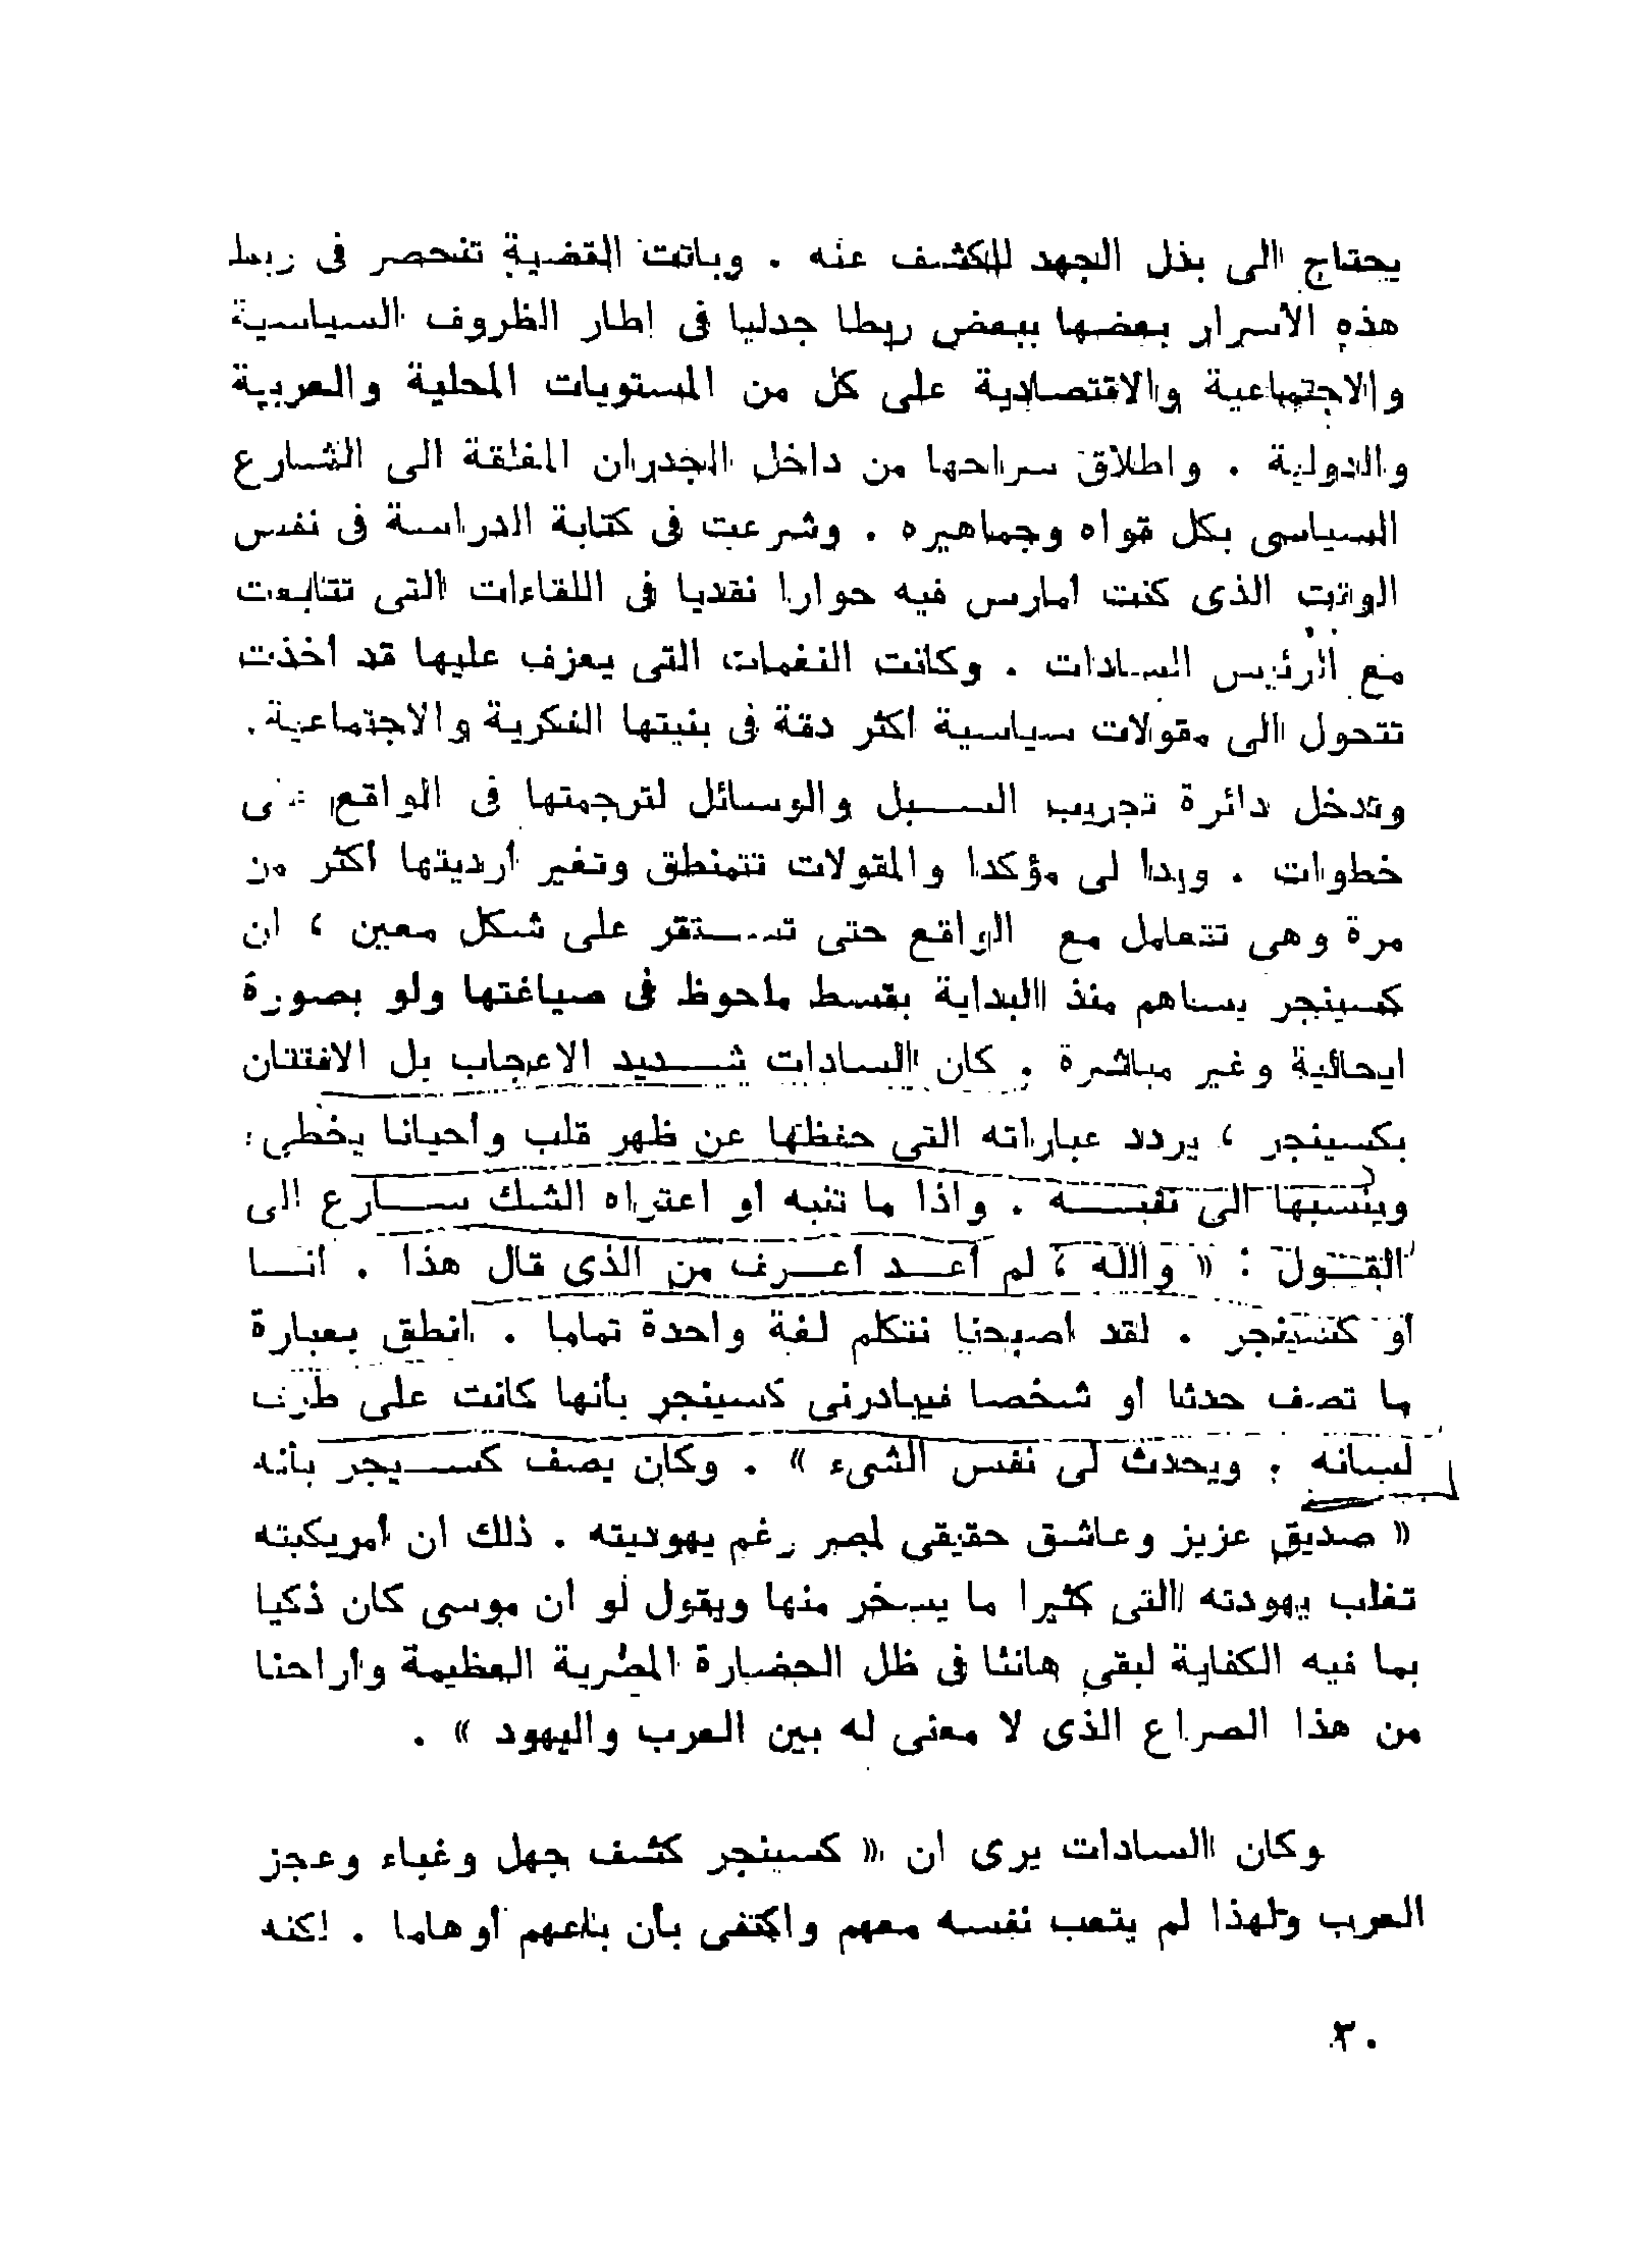 يحتاج الى بذل الجهد للكشف عنه . وباتت القضية تنحصر فى ربط
هذه الأسرار بعضها ببعض ربطا جدليا فى إطار الظروف السياسية
والاجتماعية والاقتصادية على كل من المستويات المحلية والعربية
والدولية . واطلاق سراحها من داخل الجدران المغلقة الى الشارع
السياسى بكل قواه وجماهيره . وشرعت فى كتابة الدراسة فى نفس
الوقت الذى كنت أمارس فيه حوارا نقديا فى اللقاءات التى تتابعت
مع الرئيس السادات . وكانت النغمات التى يعزف عليها قد أخذت
تتحول الى مقولات سياسية أكثر دقة فى بنيتها الفكرية والاجتماعية .
وتدخل دائرة تجريب السبل والوسائل لترجمتها فى الواقع
خطوات . وبدا لى مؤكدا والمقولات تتمنطق وتغير أرديتها أكثر من
مرة وهى تتعامل مع الواقع حتى تستقر على شكل معين ، ان
كسينجر يساهم منذ البداية بقسط ملحوظ فى صياغتها ولو بصورة
ايحائية وغير مباشرة . كان السادات شديد الاعجاب بل الافتتان
بكسينجر ، يردد عباراته التى حفظها عن ظهر قلب وأحيانا يخطىء
وينسبها الى نفسه . واذا ما تنبه أو اعتراه الشك سارع الى
القول : « والله ، لم أعد أعرف من الذى قال هذا . أنا
أو كسينجر . لقد اصبحنا نتكلم لغة واحدة تماما . انطق بعبارة
ما تصف حدثا أو شخصا فيبادرنى كسينجر بأنها كانت على طرف
لسانه . ويحدث لى نفس الشىء » . وكان يصف كسيجر بأنه
« صديق عزيز وعاشق حقيقى لمصر رغم يهوديته . ذلك ان أمريكيته
تغلب يهودته التى كثيرا ما يسخر منها ويقول لو ان موسى كان ذكيا
بما فيه الكفاية لبقى هانئا فى ظل الحضارة المصرية العظيمة وأراحنا
من هذا الصراع الذى لا معنى له بين العرب واليهود » .
وكان السادات يرى ان « كسينجر كشف جهل وغباء وعجز
العرب ولهذا لم يتعب نفسه معهم واكتفى بأن باعهم أوهاما . لكنه
٣٠